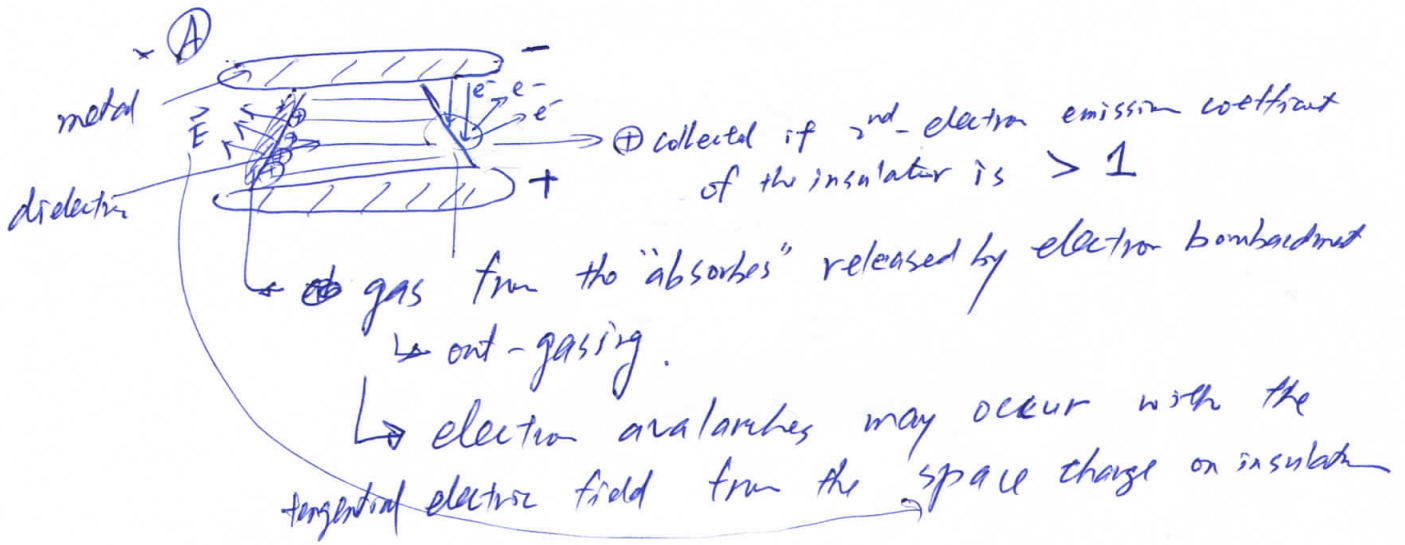 × Ⓐ
metal
E⃗
dielectric
−
e⁻ e⁻
e⁻
+
⊕ collected if 2nd-electron emission coefficient
of the insulator is > 1
gas from the "absorbes" released by electron bombardment
↳ out-gasing.
↳ electron avalanches may occur with the
tangential electric field from the space charge on insulator